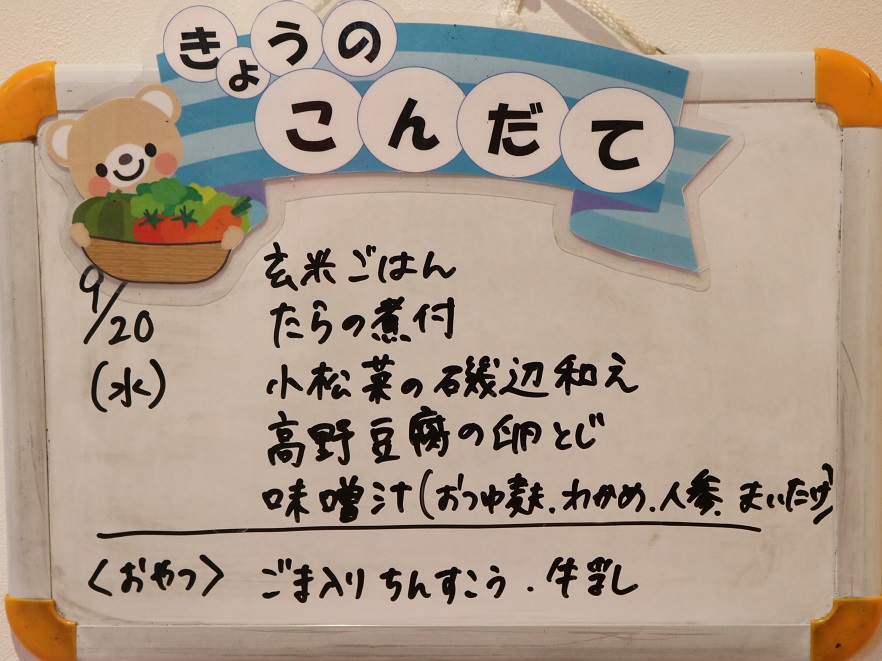 きょうの
こんだて
9/20
(水)
玄米ごはん
たらの煮付
小松菜の磯辺和え
高野豆腐の卵とじ
味噌汁(おつゆ麸.わかめ.人参.まいたけ)
〈おやつ〉 ごま入りちんすこう.牛乳